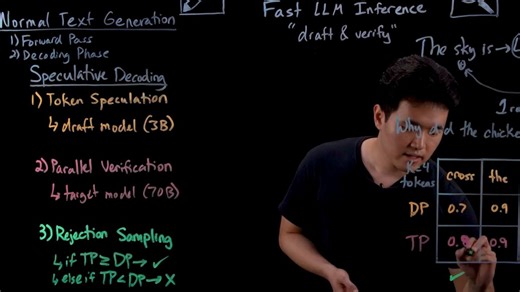 Normal Text Generation
1) Forward Pass
2) Decoding Phase
Speculative Decoding
1) Token Speculation
↳ draft model (3B)
2) Parallel Verification
↳ target model (70B)
3) Rejection Sampling
↳ if TP ≥ DP → ✓
↳ else if TP < DP → X
Fast LLM Inference
"draft & verify"
The sky is →
1
Why did the
K=4
tokens
cross the
DP 0.7 0.9
TP 0.9
✓